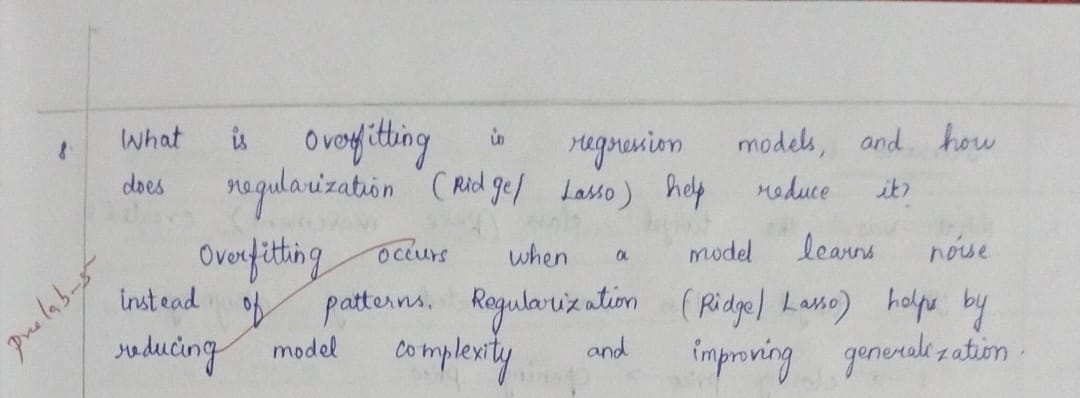 8. What is Overfitting in regression models, and how
does regularization (Ridge/ Lasso) help reduce it?
Overfitting occurs when a model learns noise
instead of patterns. Regularization (Ridge/ Lasso) helps by
reducing model complexity and improving generalization.
prelab-5